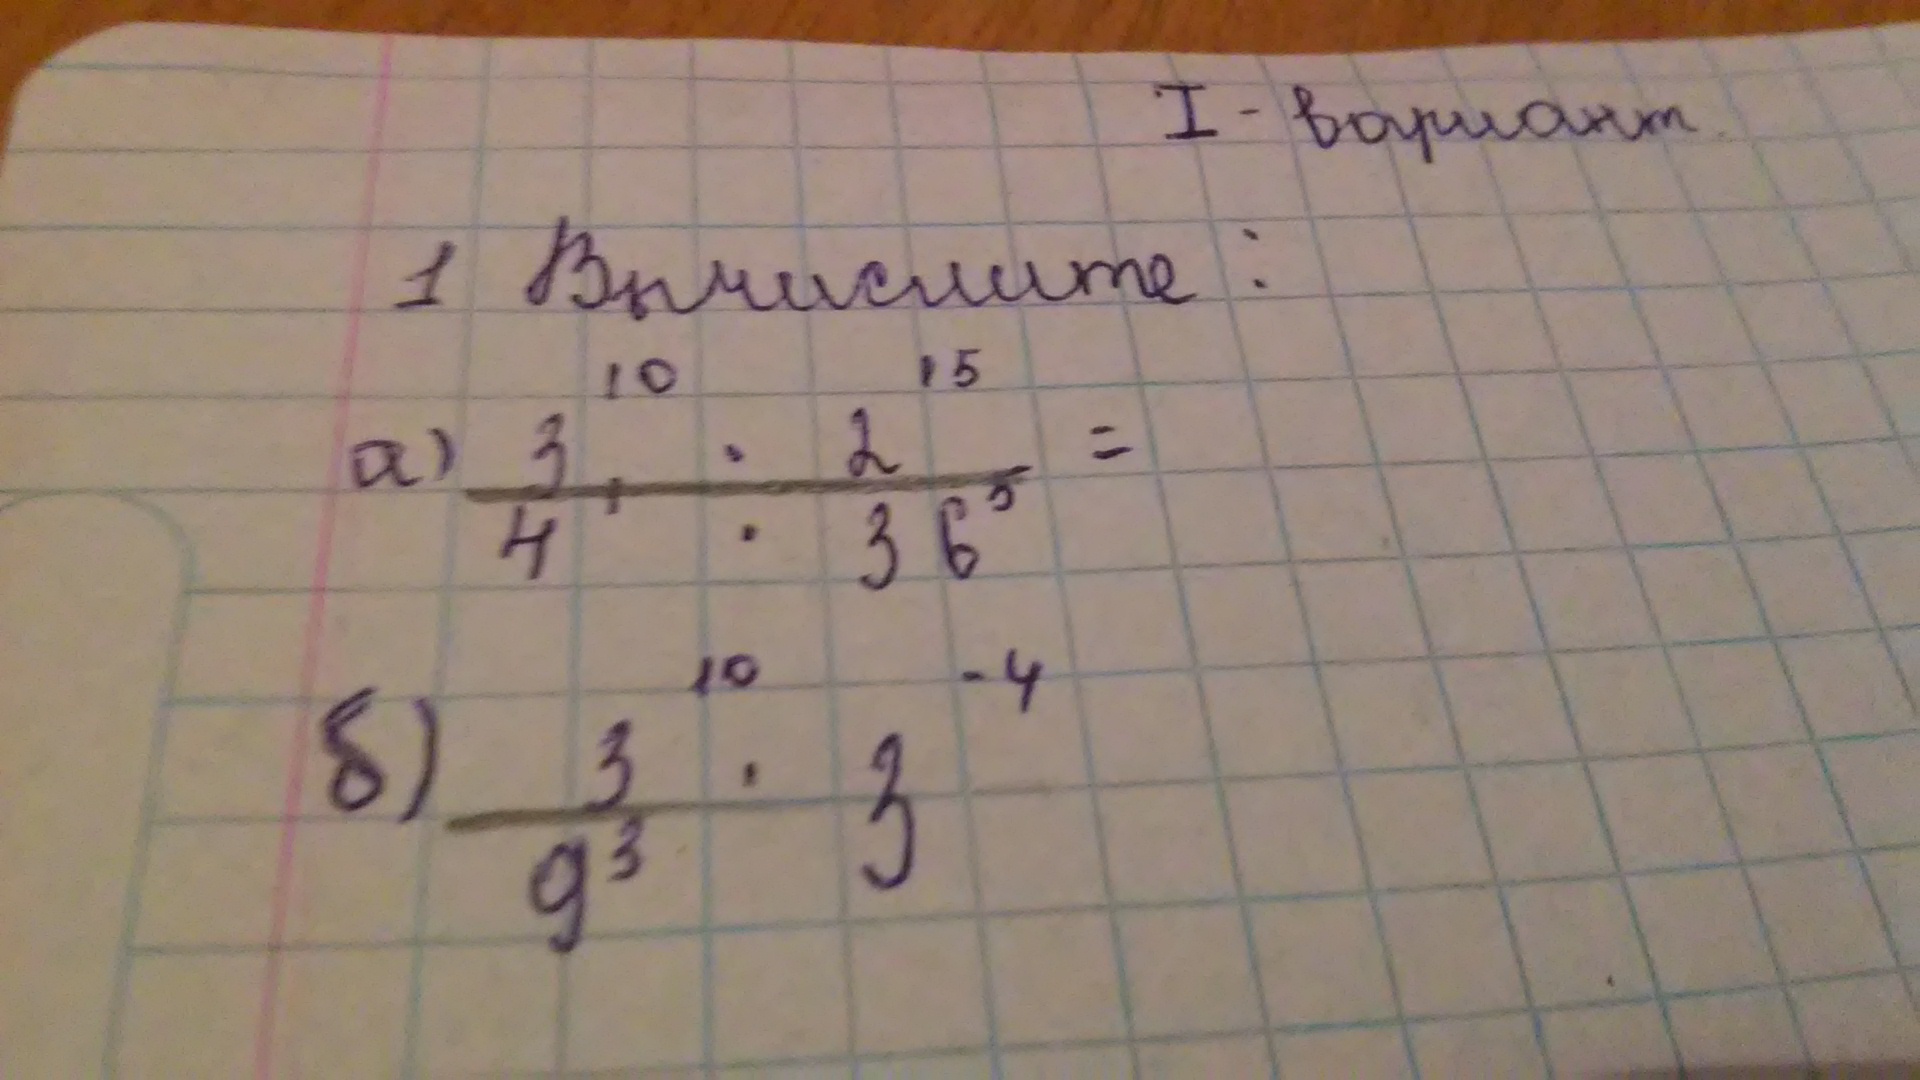 I - вариант
1 Вычислите :
а) 3¹⁰ · 2¹⁵ =
4 · 36⁵
б) 3¹⁰ · 3⁻⁴
9³